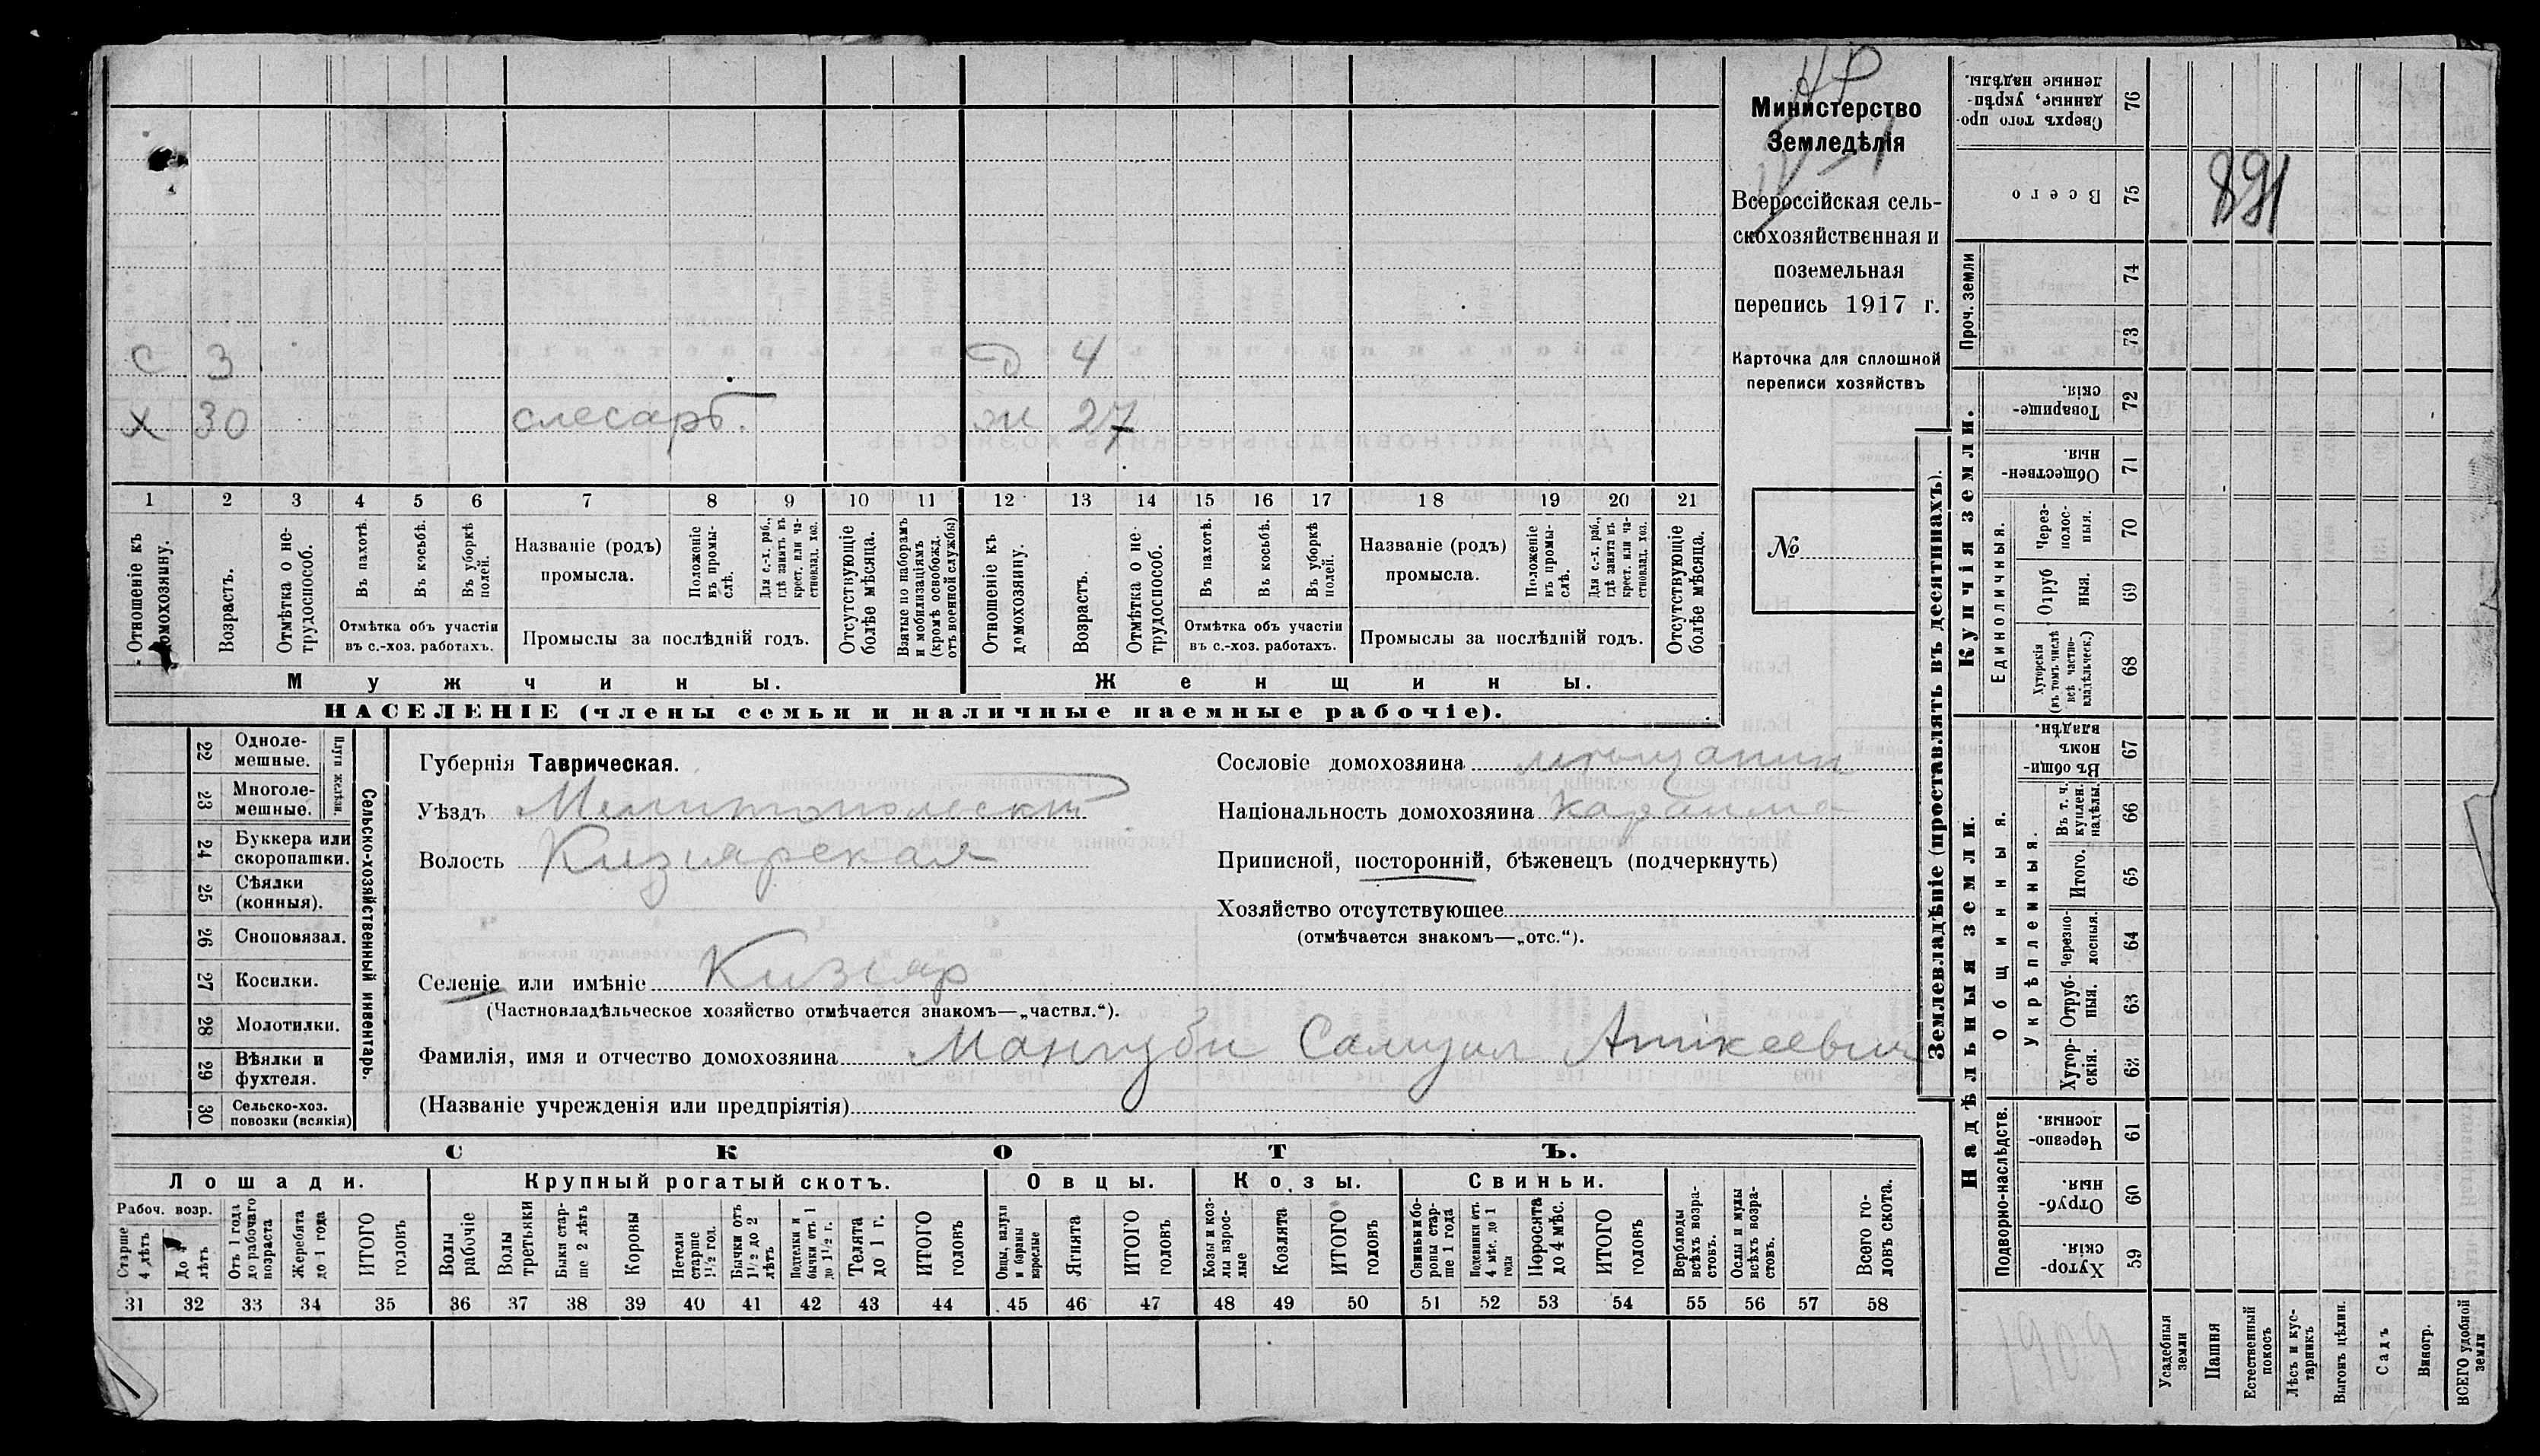 С 3 д 4
Х 30 слесарь. ж 27
1 2 3 4 5 6 7 8 9 10 11 12 13 14 15 16 17 18 19 20 21
Отношеніе къ домохозяину.
Возрастъ.
Отмѣтка о нетрудоспособ.
Въ пахотѣ.
Въ косьбѣ.
Въ уборкѣ полей.
Отмѣтка объ участіи
въ с.-хоз. работахъ.
Названіе (родъ)
промысла.
Положеніе въ промыслѣ.
Для с.-х. раб., гдѣ занятъ въ крест. или частновлад. хоз.
Промыслы за послѣдній годъ.
Отсутствующіе болѣе мѣсяца.
Взятые по наборамъ и мобилизаціямъ (кромѣ освобожд. отъ военной службы)
Отношеніе къ домохозяину.
Возрастъ.
Отмѣтка о нетрудоспособ.
Въ пахотѣ.
Въ косьбѣ.
Въ уборкѣ полей.
Отмѣтка объ участіи
въ с.-хоз. работахъ.
Названіе (родъ)
промысла.
Положеніе въ промыслѣ.
Для с.-х. раб., гдѣ занята въ крест. или частновлад. хоз.
Промыслы за послѣдній годъ.
Отсутствующіе болѣе мѣсяца.
Мужчины. Женщины.
НАСЕЛЕНІЕ (члены семьи и наличные наемные рабочіе).
Министерство
Земледѣлія
Всероссійская сель-
скохозяйственная и
поземельная
перепись 1917 г.
Карточка для сплошной
переписи хозяйствъ
№
22 Одноле-
мешные.
23 Многоле-
мешные.
Плуги желѣзн.
24 Буккера или
скоропашки.
25 Сѣялки
(конныя).
26 Сноповязал.
27 Косилки.
28 Молотилки.
29 Вѣялки и
фухтеля.
30 Сельско-хоз.
повозки (всякія)
Сельско-хозяйственный инвентарь.
Губернія Таврическая.
Уѣздъ Мелитопольскій
Волость Кизіярская
Селеніе или имѣніе Кизіяр
(Частновладѣльческое хозяйство отмѣчается знакомъ—„частвл.“).
Фамилія, имя и отчество домохозяина Мангуби Самуил Атікеевич
(Названіе учрежденія или предпріятія)
Сословіе домохозяина мѣщанин
Національность домохозяина караимъ
Приписной, посторонній, бѣженецъ (подчеркнуть)
Хозяйство отсутствующее
(отмѣчается знакомъ—„отс.“).
СКОТЪ.
Лошади. Крупный рогатый скотъ. Овцы. Козы. Свиньи.
Рабоч. возр.
Старше 4 лѣтъ
До 4 лѣтъ
Отъ 1 года до рабочаго возраста
Жеребята до 1 года
ИТОГО головъ
Волы рабочіе
Волы третьяки
Быки старше 2 лѣтъ
Коровы
Нетели старше 1½ год.
Бычки отъ 1½ до 2 лѣтъ
Подтелки и бычки отъ 1 до 1½ г.
Телята до 1 г.
ИТОГО головъ
Овцы, валухи и бараны взрослые
Ягнята
ИТОГО головъ
Козы и козлы взрослые
Козлята
ИТОГО головъ
Свиньи и боровы старше 1 года
Подсвинки отъ 4 мѣс. до 1 года
Поросята до 4 мѣс.
ИТОГО головъ
Верблюды всѣхъ возрастовъ.
Ослы и мулы всѣхъ возрастовъ.
Всего головъ скота.
31 32 33 34 35 36 37 38 39 40 41 42 43 44 45 46 47 48 49 50 51 52 53 54 55 56 57 58
Землевладѣніе (проставлять въ десятинахъ).
Купчія земли.
Надѣльныя земли.
Сверхъ того проданные, укрѣпленные надѣлы. 76
Всего 75
Проч. земли 74 73
Товарищескія. 72
Общественныя. 71
Единоличныя.
Черезполосныя. 70
Отрубныя. 69
Хуторскія (въ томъ числѣ всѣ частновладѣльческ.) 68
Общинныя.
Въ общинномъ владѣн. 67
Укрѣпленныя.
Въ т. ч. куплен. надѣлы. 66
Итого. 65
Черезполосныя. 64
Отрубныя. 63
Хуторскія. 62
Подворно-наслѣдств.
Черезполосныя. 61
Отрубныя. 60
Хуторскія. 59
Усадебныя земли
Пашня
Естественный покосъ
Лѣсъ и кустарникъ
Выгонъ цѣлин.
Садъ
Виногр.
ВСЕГО удобной земли